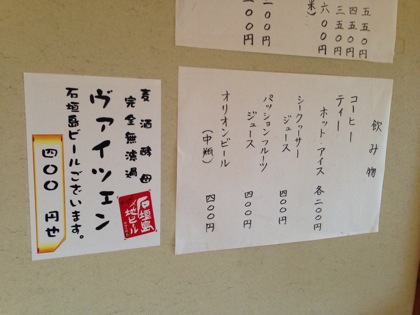 五五〇円
四五〇円
三五〇円
六〇〇円
〇〇円
〇〇円
飲み物
コーヒー
ティー
ホット・アイス 各二〇〇円
シークヮーサー
ジュース 四〇〇円
パッションフルーツ
ジュース 四〇〇円
オリオンビール
(中瓶) 四〇〇円
麦酒酵母
完全無濾過
ヴァイツェン
石垣島
地ビール
石垣島ビールございます。
四〇〇円也